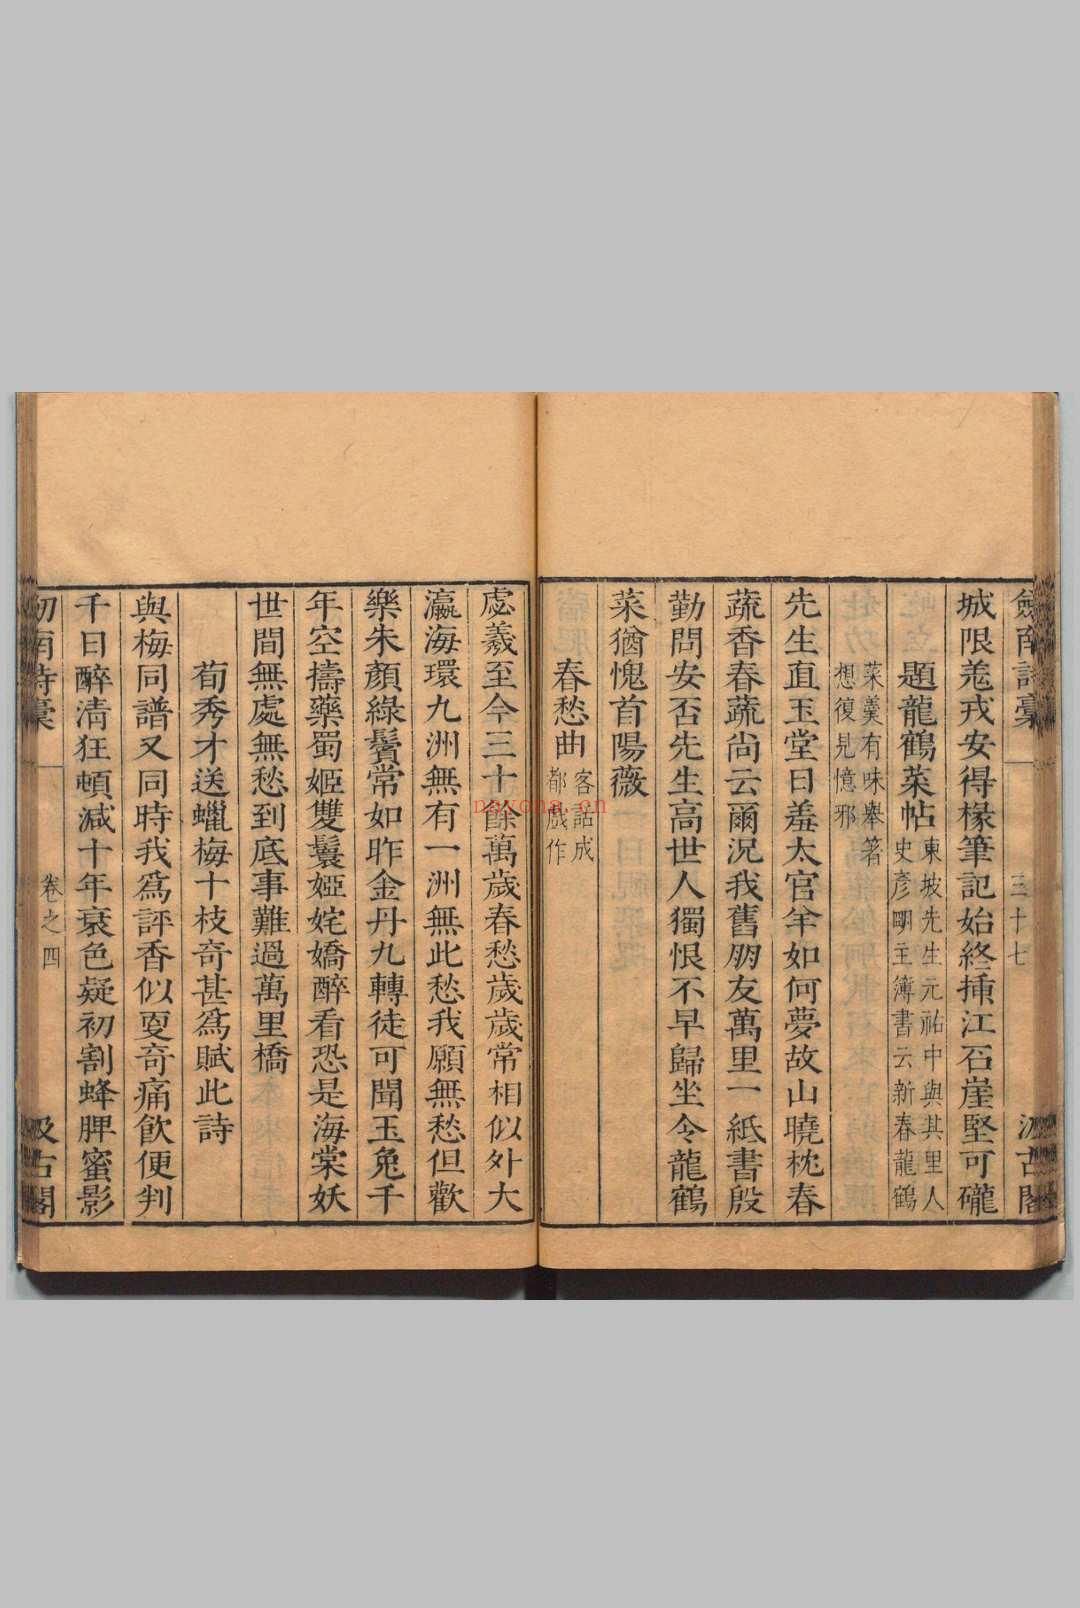 劍南詩稾
三十七
汲古閣
城限羗戎安得椽筆記始終揷江石崖堅可礲
題龍鶴菜帖
東坡先生元祐中與其里人
史彥明主簿書云新春龍鶴
菜羹有味舉箸
想復見憶邪
先生直玉堂日羞太官羊如何夢故山曉枕春
蔬香春蔬尚云爾況我舊朋友萬里一紙書殷
勤問安否先生高世人獨恨不早歸坐令龍鶴
菜猶愧首陽薇
春愁曲
客話成
都戲作
nayona.cn
處羲至今三十餘萬歲春愁歲歲常相似外大
瀛海環九洲無有一洲無此愁我願無愁但歡
樂朱顏綠鬢常如昨金丹九轉徒可聞玉兔千
年空擣藥蜀姬雙鬟婭姹嬌醉看恐是海棠妖
世間無處無愁到底事難過萬里橋
荀秀才送蠟梅十枝奇甚爲賦此詩
與梅同譜又同時我爲評香似更奇痛飲便判
千日醉淸狂頓減十年衰色疑初割蜂脾蜜影
卷之四
汲古閣